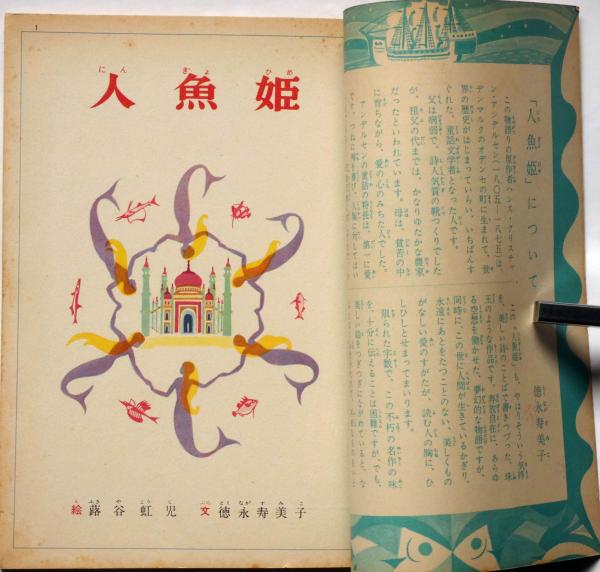 1
人魚姫
にんぎょひめ
絵 蕗谷虹児 文 徳永寿美子
え ふきやこうじ ぶん とくながすみこ
「人魚姫」について
徳永寿美子
この物語りの原作者ハンス・クリスチャ
ン・アンデルセン(一八〇五―一八七五)は、
デンマルクのオデンセの町に生まれて、世
界の歴史がはじまっていらい、いちばんす
ぐれた、童話文学者となった人です。
父は病弱で、詩人気質の靴つくりでした
が、祖父の代までは、かなりゆたかな農家
だったといわれています。母は、貧苦の中
に育ちながら、愛の心のみちた人でした。
アンデルセンの童話の特長は、第一に愛
この「人魚姫」も、やはりそういう気持
を、美しい詩のことばで書きつづった、珠
玉のような作品です。奔放自在に、あらゆ
る空想を働かせた、夢幻的な物語ですが、
同時に、この世に人間が生きているかぎり、
永遠にあとをたつことのない、美しくもの
がなしい愛のすがたが、読む人の胸に、ひ
しひしとせまってまいります。
限られた字数で、この不朽の名作の味
を、十分に伝えることは困難ですが、でも、